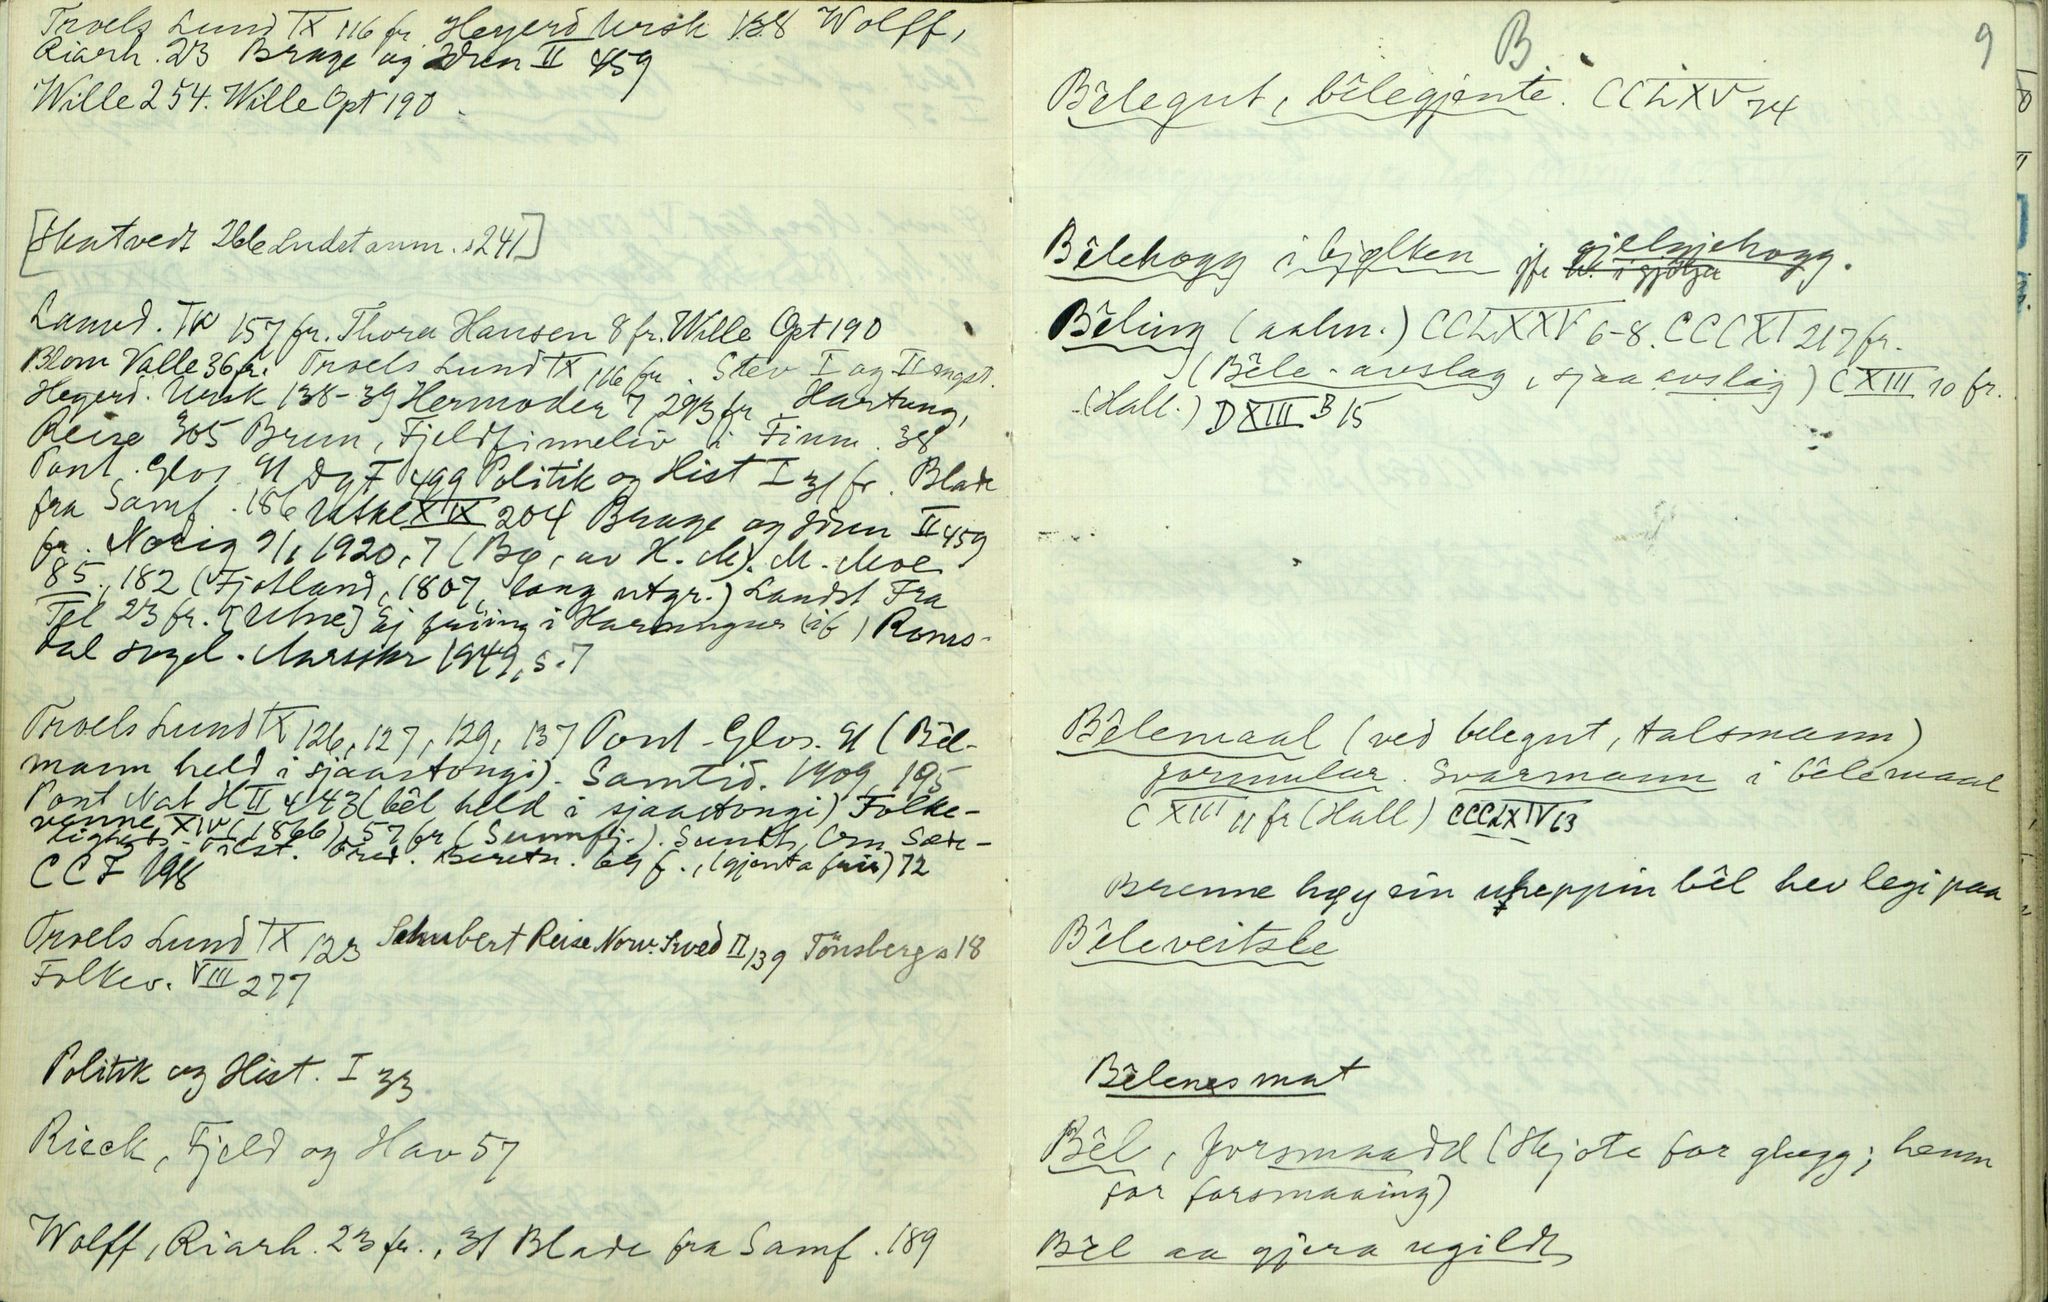 Troels Lund IX 116 fr. Hegerd Ursk 138 Wolff,
Riarh. 23 Brage og Idun II 459
Wille 254. Wille Opt 190
[Skatvedt 266 Lundst anm. s 241]
157 fr. Thora Hansen 8 fr. Wille Opt 190
Blom Valle 36 fr. Troels Lund IX 116 fr. Stev I og II
Hegerd. Ursk 138-39 Hermoder 7, 293 fr. Hartung,
Reise 305 Brun, Fjeldfinneliv i Finm. 38
Pont. Glos. 91 Dgf 499 Politik og Hist I 31 fr. Blade
fra Samf. 186 XIX 204 Brage og Idun II 459
fr. Norig 9/1 1920, 7 (Bg, av H. M). M. Moe
85, 182 (Fjotland, 1807, lang utgr.) Landst Fra
Tel 23 fr. [Utne] Ej friing i Hardanger (ib) Roms-
dal sogel. Aarsskr 1949, s. 7
Troels Lund IX 126, 127, 129, 137 Pont. Glos. 91 (Bêl-
mann held i sjaastongi). Samtid. 1909, 195
Pont Nat H II 443 (bêl held i sjaastongi) Folke-
venne XIV (1866), 57 fr (Sunnfj.). Sundt, Om Sæde-
ligheds-Tilst. Beretn. 69 f., (gjenta friar) 72
CCI 198
Troels Lund IX 123 Schubert Reise Norw. Swed II 139 Tönsberg s 18
Folkev. VIII 277
Politik og Hist. I 33
Rieck, Fjeld og Hav 57
Wolff, Riarh. 23 fr., 31 Blade fra Samf. 189
B 9
Bêlegut, bêlegjente. CCLXV 74
Bêlehogg i bjølken jfr gjelgjehogg.
Bêling (aalm.) CCLXXV 6-8. CCCXI 217 fr.
(Bêle-avslag, sjaa avslag) CXIII 10 fr.
(Hall.) DXIII B 15
Bêlemaal (ved belegut, talsmann)
formular. Svarmann i bêlemaal
CXIII 11 fr (Hall) CCCLXIV 63
Brenne høy ein uheppin bêl hev legi paa
Bêleveitsle
Bêlenesmat
Bêl, forsmaadd (Skjote for glugg; hemn
for forsmaaing)
Bêl aa gjera ugildt